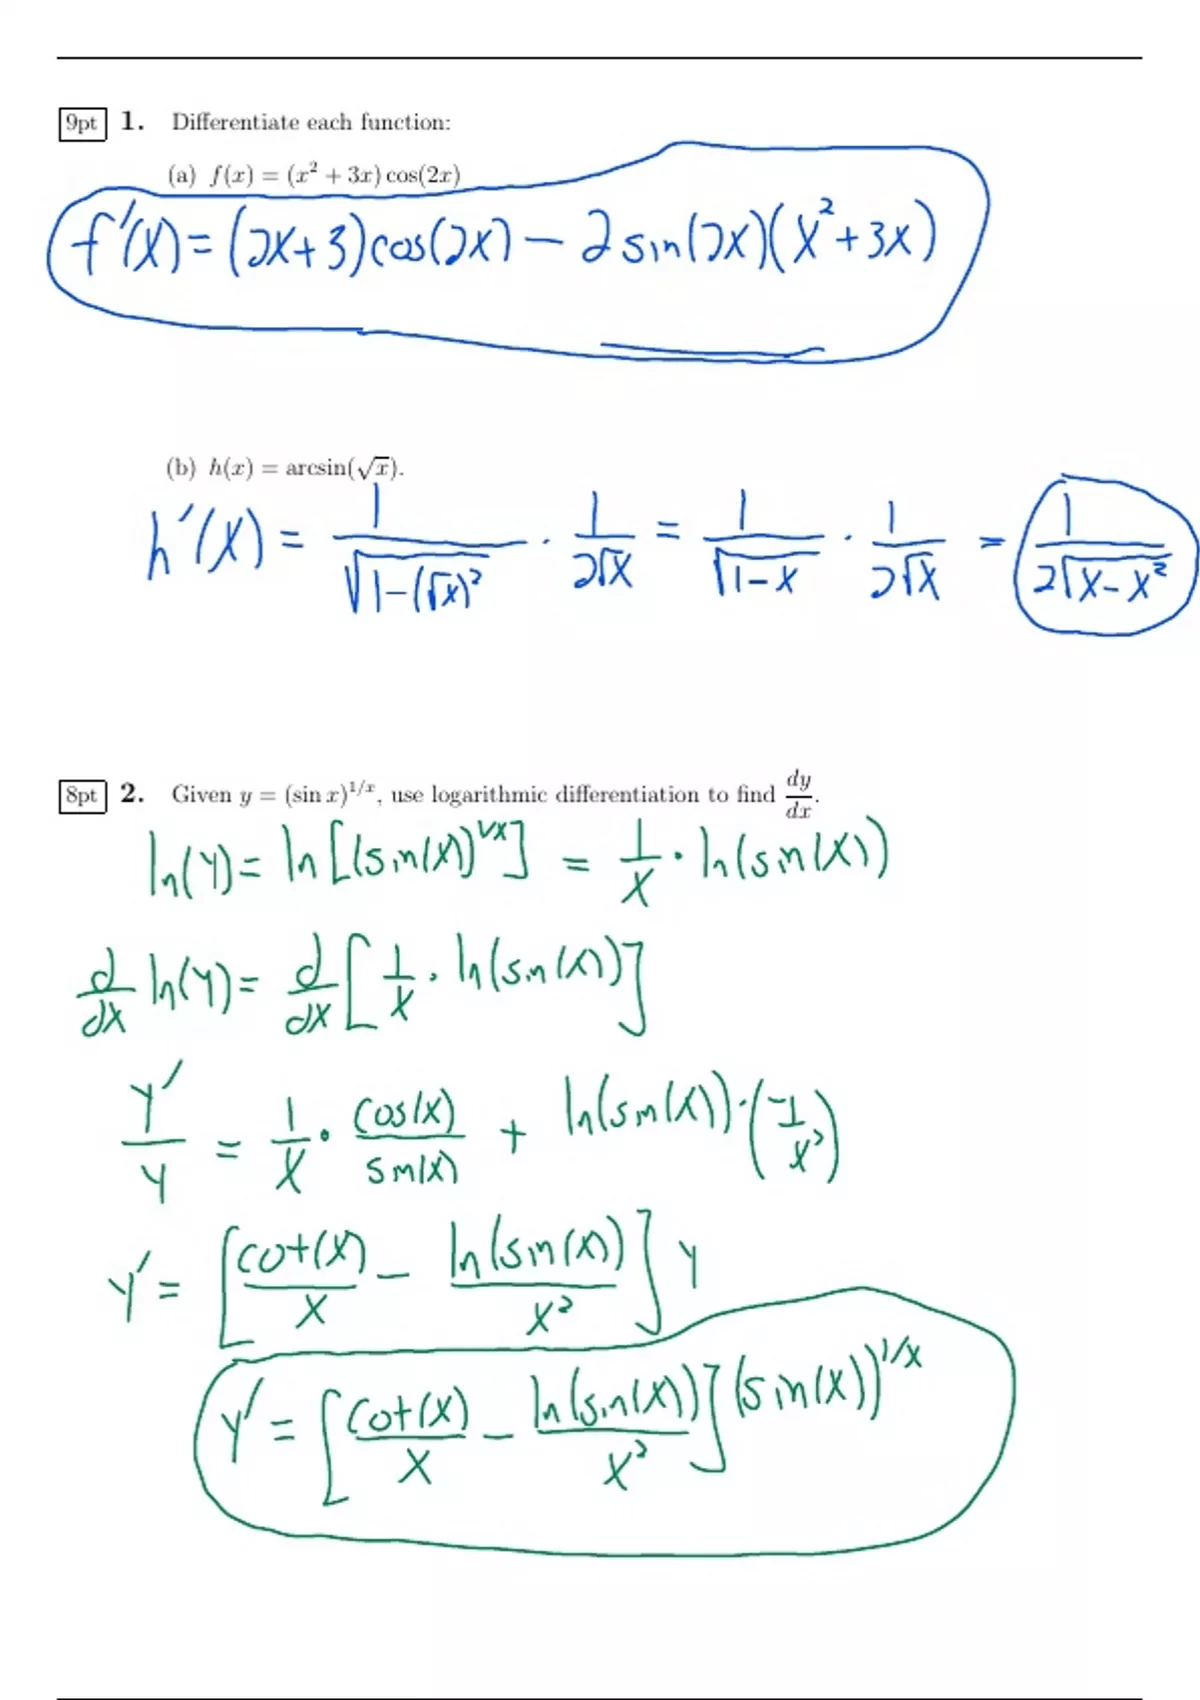 9pt 1. Differentiate each function:
(a) f(x) = (x² + 3x) cos(2x)
f'(x) = (2x+3)cos(2x) − 2sin(2x)(x²+3x)
(b) h(x) = arcsin(√x).
h'(x) = 1/√(1−(√x)²) · 1/(2√x) = 1/√(1−x) · 1/(2√x) = 1/(2√(x−x²))
8pt 2. Given y = (sin x)^{1/x}, use logarithmic differentiation to find dy/dx.
ln(y) = ln[(sin(x))^{1/x}] = 1/x · ln(sin(x))
d/dx ln(y) = d/dx [1/x · ln(sin(x))]
y'/y = 1/x · cos(x)/sin(x) + ln(sin(x)) · (−1/x²)
y' = [cot(x)/x − ln(sin(x))/x²] y
y' = [cot(x)/x − ln(sin(x))/x²] (sin(x))^{1/x}